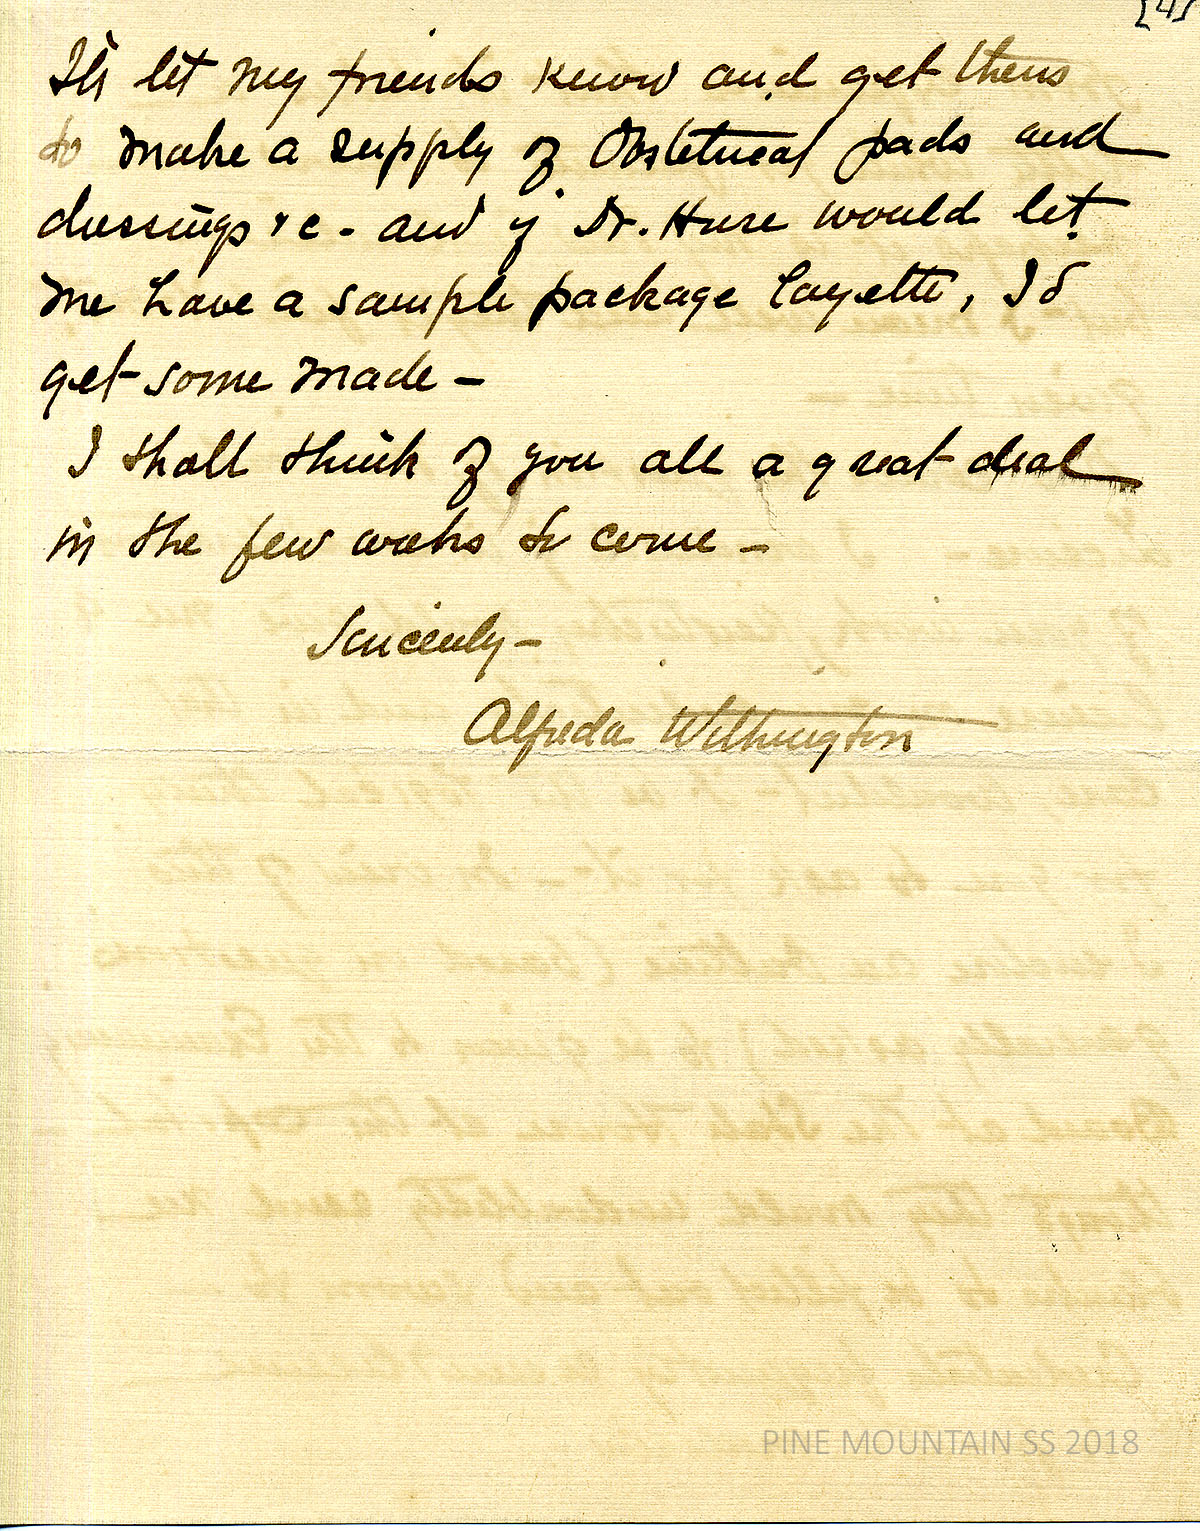 [4]
I'd let my friends know and get them
to make a supply of Obstetrical pads and
dressings &c - and if Dr. Huse would let
me have a sample package layette, I'd
get some made -
I shall think of you all a great deal
in the few weeks to come -
Sincerely -
Alfreda Withington
PINE MOUNTAIN SS 2018